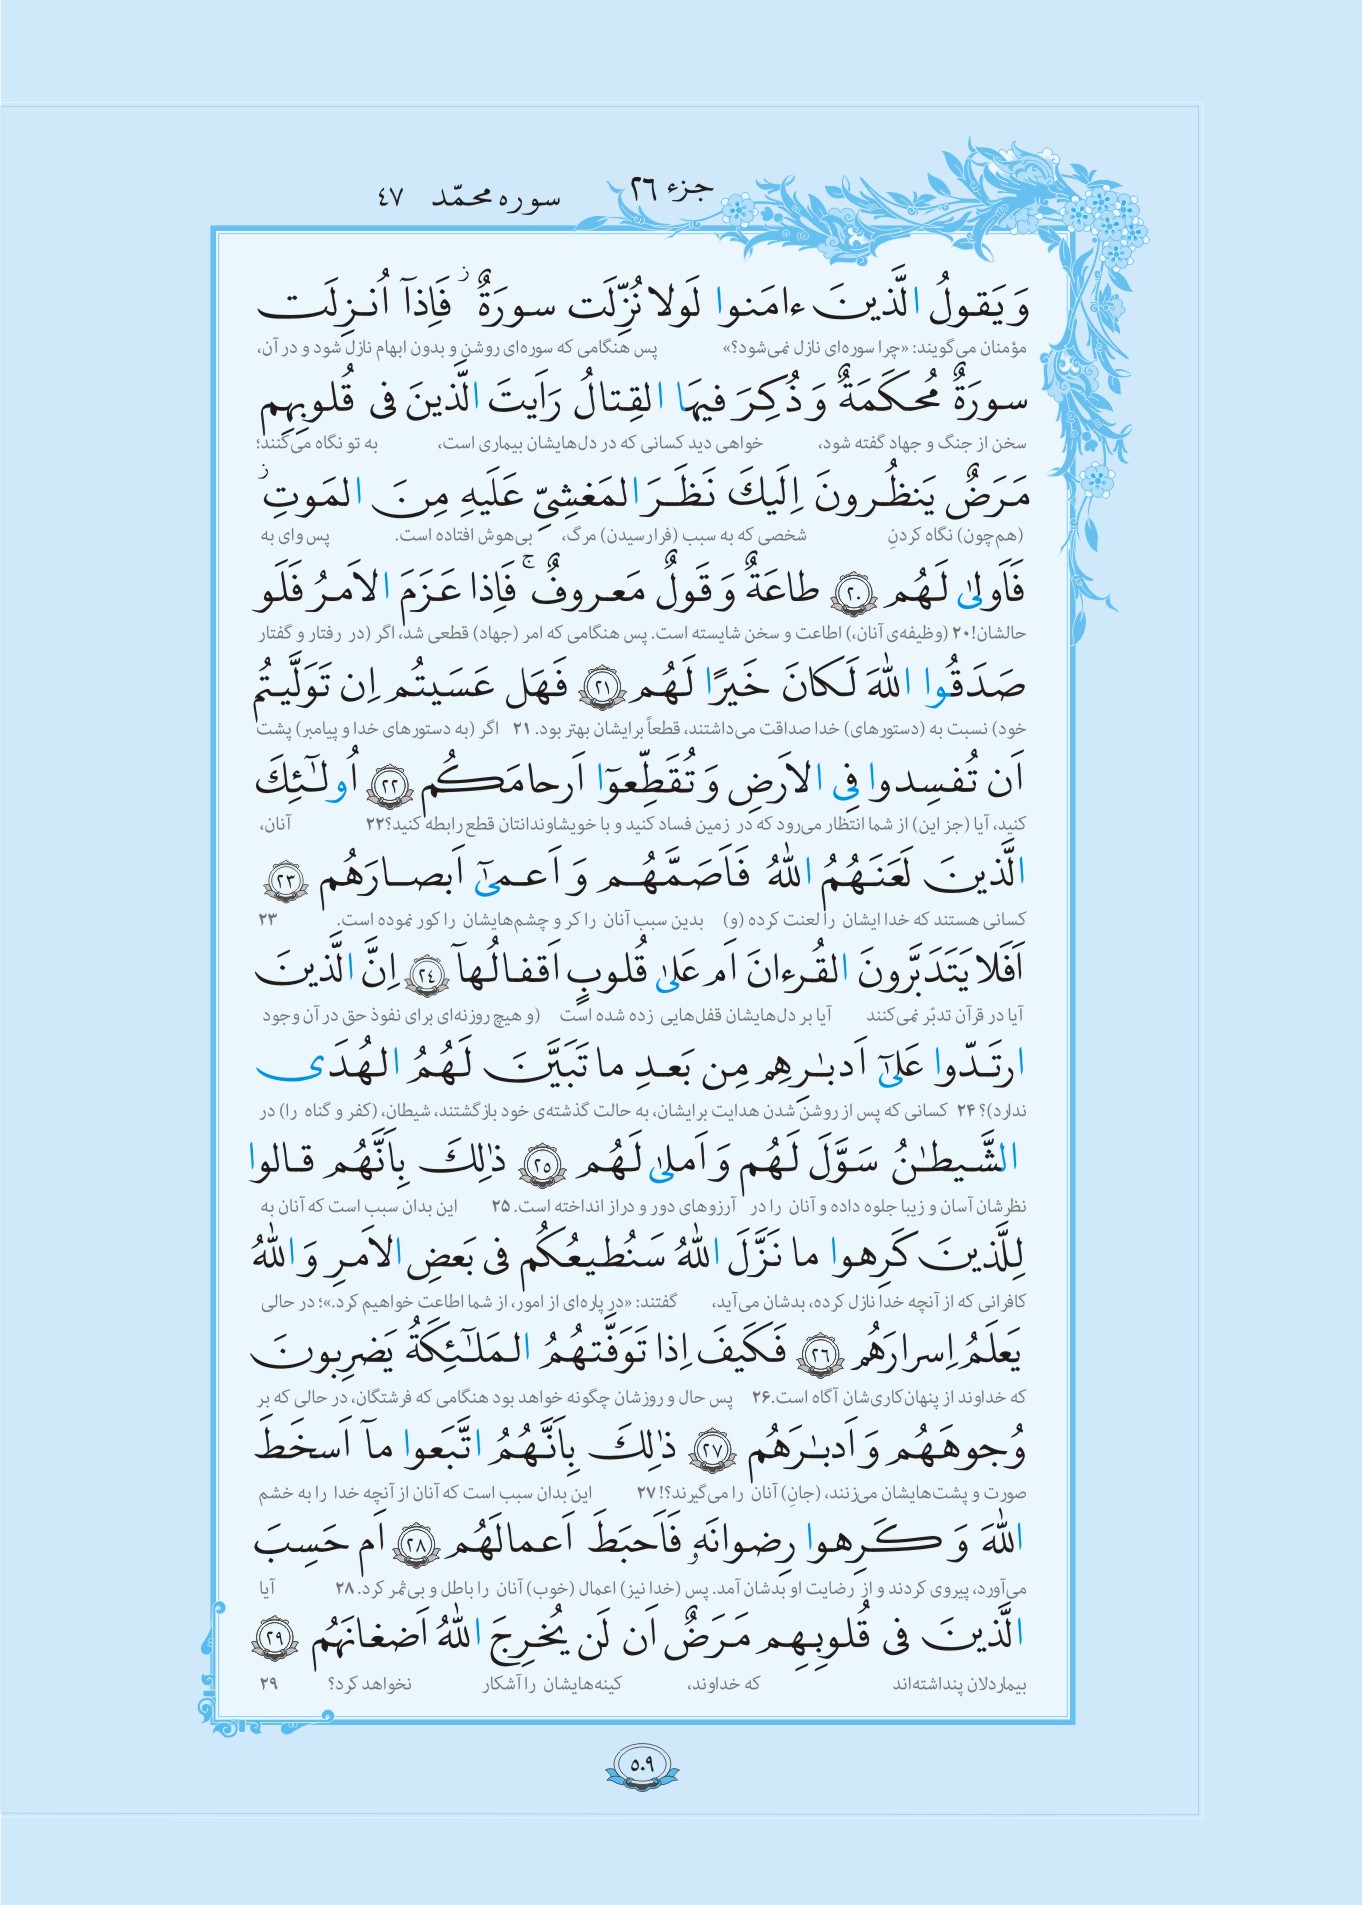 جزء ٢٦
سوره محمّد ٤٧
وَ يَقولُ الَّذينَ ءامَنوا لَولا نُزِّلَت سورَةٌ ۖ فَاِذآ اُنزِلَت
مؤمنان می‌گویند: «چرا سوره‌ای نازل نمی‌شود؟» پس هنگامی که سوره‌ای روشن و بدون ابهام نازل شود و در آن،
سورَةٌ مُحكَمَةٌ وَ ذُكِرَ فيهَا القِتالُ رَاَيتَ الَّذينَ فی قُلوبِهِم
سخن از جنگ و جهاد گفته شود، خواهی دید کسانی که در دل‌هایشان بیماری است، به تو نگاه می‌کنند؛
مَرَضٌ يَنظُرونَ اِلَيكَ نَظَرَ المَغشِیِّ عَلَيهِ مِنَ المَوتِ ز
(هم‌چون) نگاه کردنِ شخصی که به سبب (فرارسیدن) مرگ، بی‌هوش افتاده است. پس وای به
فَاَولیٰ لَهُم ٢٠ طاعَةٌ وَ قَولٌ مَعروفٌ ۚ فَاِذا عَزَمَ الاَمرُ فَلَو
حالشان! ۲۰ (وظیفه‌ی آنان،) اطاعت و سخن شایسته است. پس هنگامی که امر (جهاد) قطعی شد، اگر (در رفتار و گفتار
صَدَقُوا اللّٰهَ لَكانَ خَيرًا لَهُم ٢١ فَهَل عَسَيتُم اِن تَوَلَّيتُم
خود) نسبت به (دستورهای) خدا صداقت می‌داشتند، قطعاً برایشان بهتر بود. ۲۱ اگر (به دستورهای خدا و پیامبر) پشت
اَن تُفسِدوا فِی الاَرضِ وَ تُقَطِّعوٓا اَرحامَكُم ٢٢ اُولٰٓئِكَ
کنید، آیا (جز این) از شما انتظار می‌رود که در زمین فساد کنید و با خویشاوندانتان قطع رابطه کنید؟ ۲۲ آنان،
الَّذينَ لَعَنَهُمُ اللّٰهُ فَاَصَمَّهُم وَ اَعمیٰٓ اَبصارَهُم ٢٣
کسانی هستند که خدا ایشان را لعنت کرده (و) بدین سبب آنان را کر و چشم‌هایشان را کور نموده است. ۲۳
اَفَلا يَتَدَبَّرونَ القُرءانَ اَم عَلیٰ قُلوبٍ اَقفالُهآ ٢٤ اِنَّ الَّذينَ
آیا در قرآن تدبّر نمی‌کنند آیا بر دل‌هایشان قفل‌هایی زده شده است (و هیچ روزنه‌ای برای نفوذ حق در آن وجود
ارتَدّوا عَلیٰٓ اَدبـٰرِهِم مِن بَعدِ ما تَبَيَّنَ لَهُمُ الهُدَی
ندارد)؟ ۲۴ کسانی که پس از روشن شدن هدایت برایشان، به حالت گذشته‌ی خود بازگشتند، شیطان، (کفر و گناه را) در
الشَّيطـٰنُ سَوَّلَ لَهُم وَ اَملیٰ لَهُم ٢٥ ذٰلِكَ بِاَنَّهُم قالوا
نظرشان آسان و زیبا جلوه داده و آنان را در آرزوهای دور و دراز انداخته است. ۲۵ این بدان سبب است که آنان به
لِلَّذينَ كَرِهوا ما نَزَّلَ اللّٰهُ سَنُطيعُكُم فی بَعضِ الاَمرِ وَ اللّٰهُ
کافرانی که از آنچه خدا نازل کرده، بدشان می‌آید، گفتند: «در پاره‌ای از امور، از شما اطاعت خواهیم کرد.»؛ در حالی
يَعلَمُ اِسرارَهُم ٢٦ فَكَيفَ اِذا تَوَفَّتهُمُ المَلـٰٓئِكَةُ يَضرِبونَ
که خداوند از پنهان‌کاری‌شان آگاه است. ۲۶ پس حال و روزشان چگونه خواهد بود هنگامی که فرشتگان، در حالی که بر
وُجوهَهُم وَ اَدبـٰرَهُم ٢٧ ذٰلِكَ بِاَنَّهُمُ اتَّبَعوا مآ اَسخَطَ
صورت و پشت‌هایشان می‌زنند، (جانِ) آنان را می‌گیرند؟! ۲۷ این بدان سبب است که آنان از آنچه خدا را به خشم
اللّٰهَ وَ كَرِهوا رِضوانَهٗ فَاَحبَطَ اَعمالَهُم ٢٨ اَم حَسِبَ
می‌آورد، پیروی کردند و از رضایت او بدشان آمد. پس (خدا نیز) اعمال (خوب) آنان را باطل و بی‌ثمر کرد. ۲۸ آیا
الَّذينَ فی قُلوبِهِم مَرَضٌ اَن لَن يُخرِجَ اللّٰهُ اَضغانَهُم ٢٩
بیماردلان پنداشته‌اند که خداوند، کینه‌هایشان را آشکار نخواهد کرد؟ ۲۹
٥٠٩